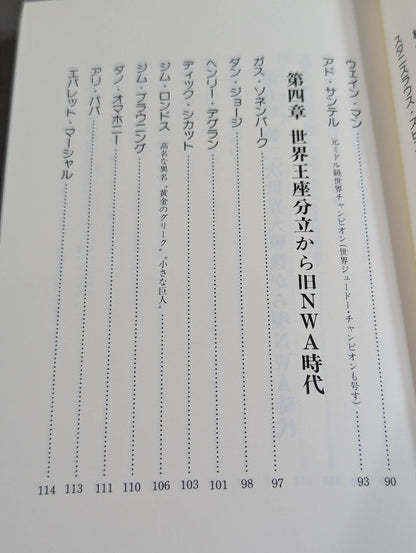 スタニスラウス・
ウェイン・マン 90
アド・サンテル 元ミドル級世界チャンピオン(世界ジュードー・チャンピオンも号す) 93
第四章 世界王座分立から旧NWA時代
ガス・ソネンバーグ 97
ダン・ジョージ 98
ヘンリー・デグラン 101
ディック・シカット 103
ジム・ロンドス 高名な異名“黄金のグリーク”“小さな巨人” 106
ジム・ブラウニング 110
ダン・オマホニー 111
アリ・ババ 113
エバレット・マーシャル 114